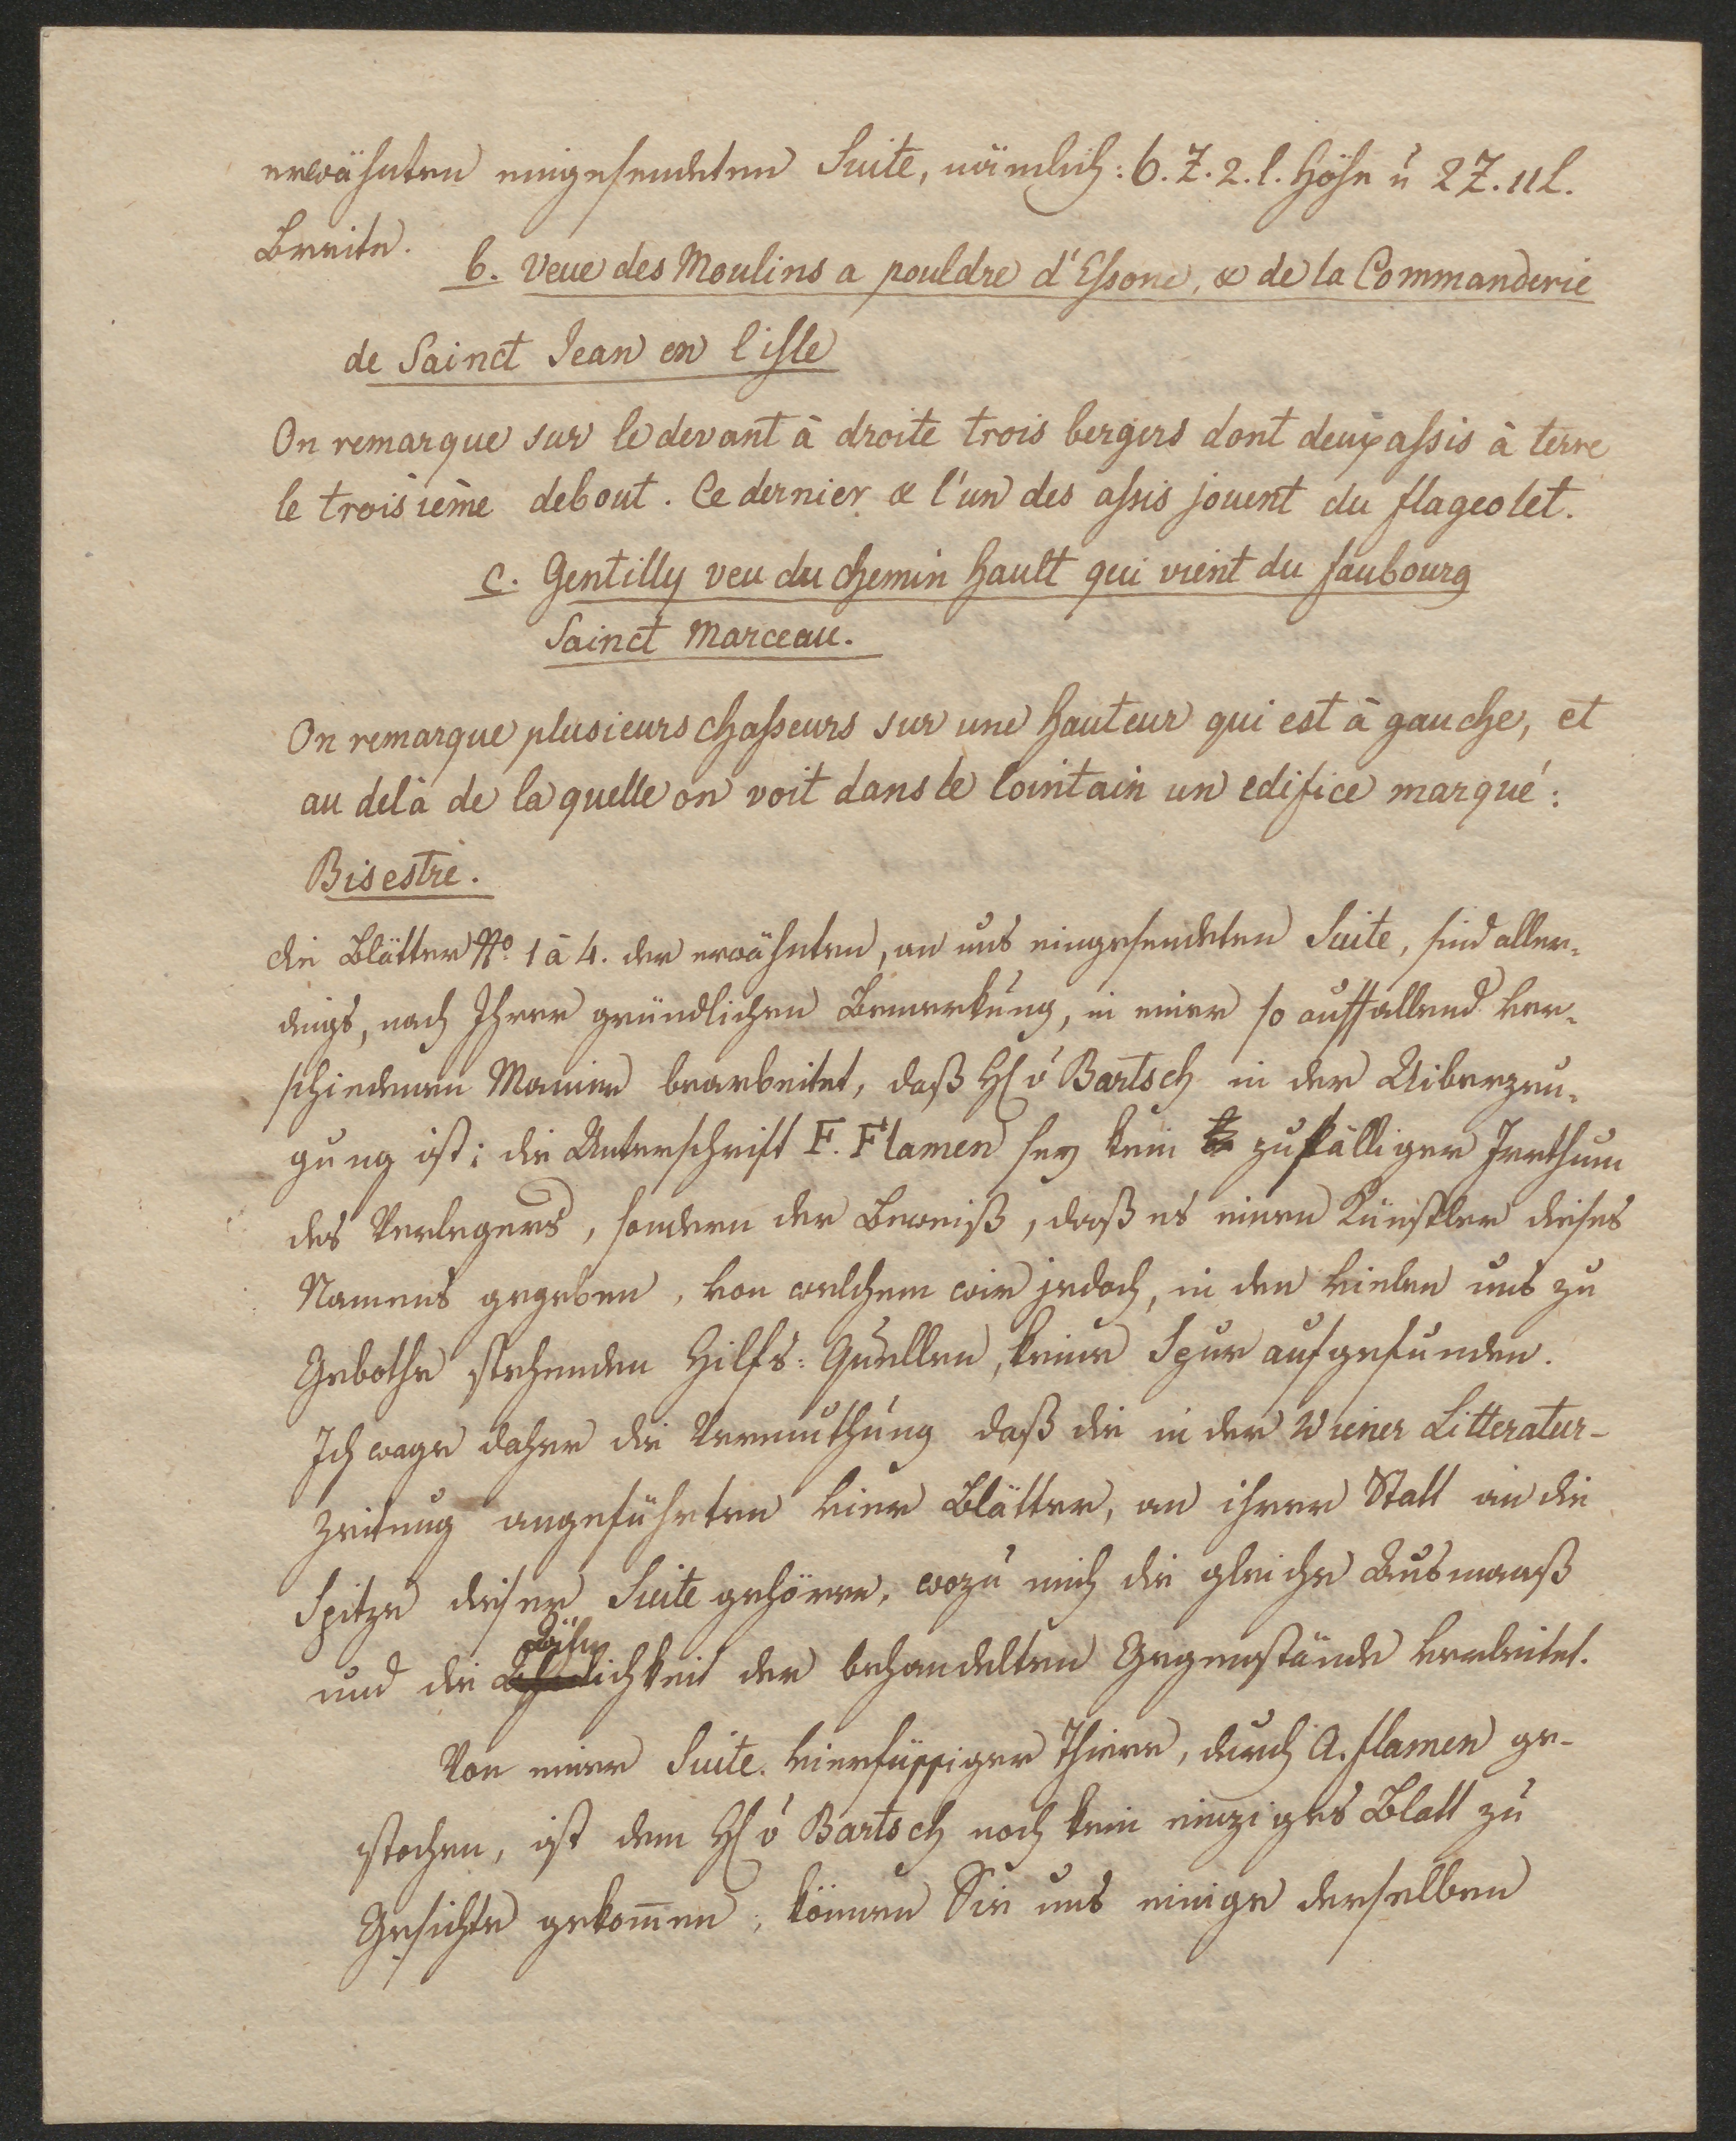 erwähnten eingesendeten Suite, nämlich: 6. Z. 2. l. Höhe ū 2 Z. 11 L.
Breite.
b. Veue des Moulins a pouldre d'Essone, & de la Commanderie
de Sainct Jean en l'isle
On remarque sur le devant à droite trois bergers dont deux assis à terre
le troisième debout. Ce dernier & l'un des assis jouent du flageolet.
c. Gentilly veu du chemin hault qui vient du faubourg
Sainct Marceau.
On remarque plusieurs chasseurs sur une hauteur qui est à gauche, et
au delà de laquelle on voit dans le lointain un edifice marqué:
Bisestre.
die Blätter No. 1 à 4. der erwähnten, an uns eingesendeten Suite, sind aller-
dings, nach Ihrer gründlichen Bemerkung, in einer so auffallend ver-
schiedenen Manier bearbeitet, daß H v Bartsch in der Uiberzeu-
gung ist: die Unterschrift F. Flamen sey kein zufälliger Irrthum
des Verlegers, sondern der Beweiß, daß es einen Künstler dieses
Namens gegeben, von welchem wir jedoch, in den vielen uns zu
Gebothe stehenden Hilfs-Quellen, keine Spur aufgefunden.
Ich wage daher die Vermuthung daß die in der Wiener Litteratur-
zeitung angeführten vier Blätter, an ihrer Statt an die
Spitze dieser Suite gehören, wozu mich die gleiche Ausmaaß
und die Ähnlichkeit der behandelten Gegenstände verleitet.
Von einer Suite vierfüssiger Thiere, durch A. flamen ge-
stochen, ist dem H v Bartsch noch kein einziges Blatt zu
Gesichte gekom̄en; können Sie uns einige derselben